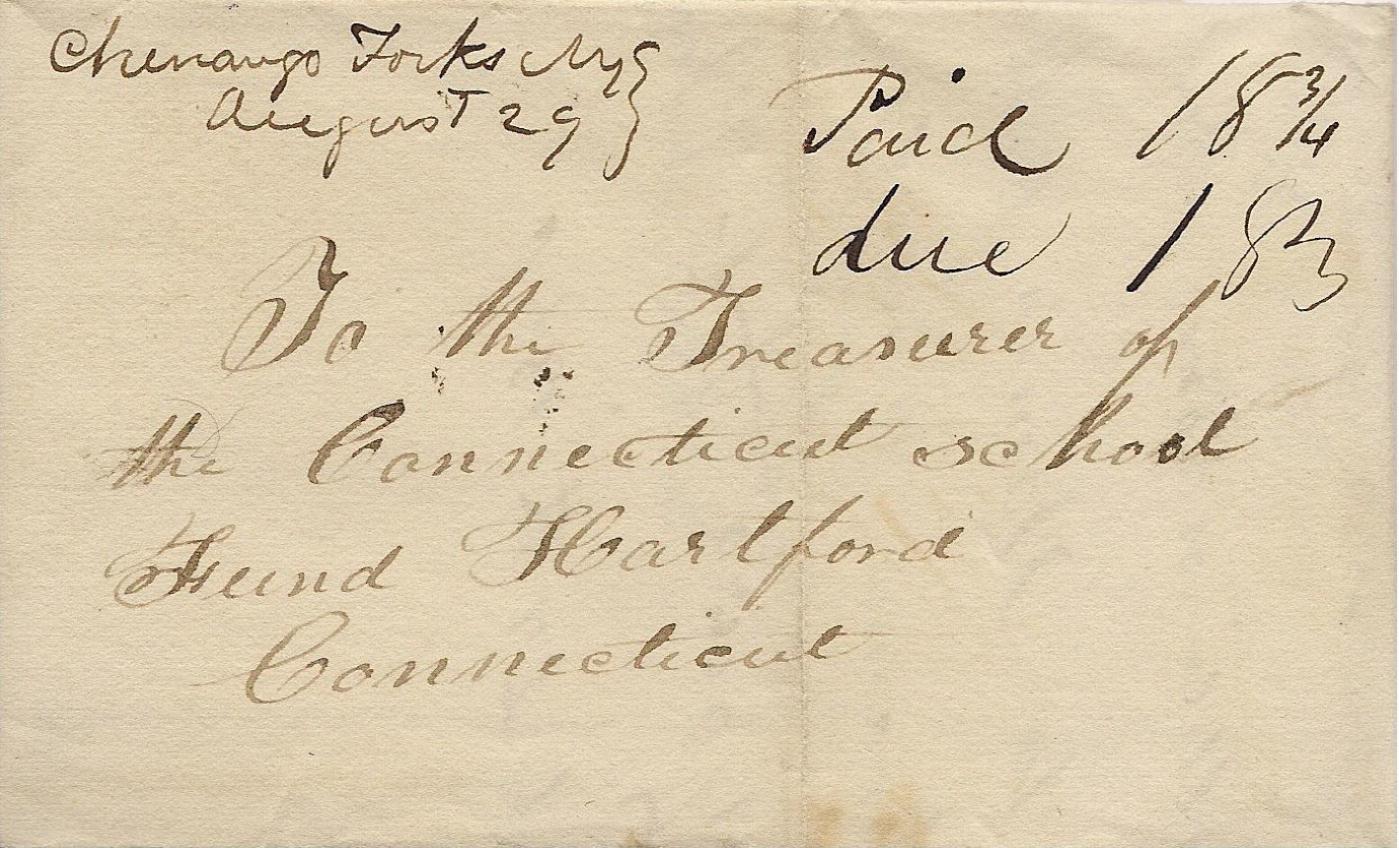 Chenango Forks NY }
August 29 }
Paid 18 3/4
due 18
To the Treasurer of
the Connecticut school
Fund Hartford
Connecticut